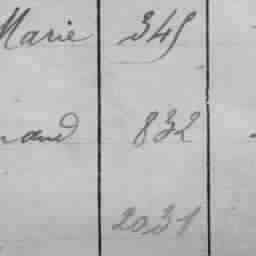 Marie 345
832
2031